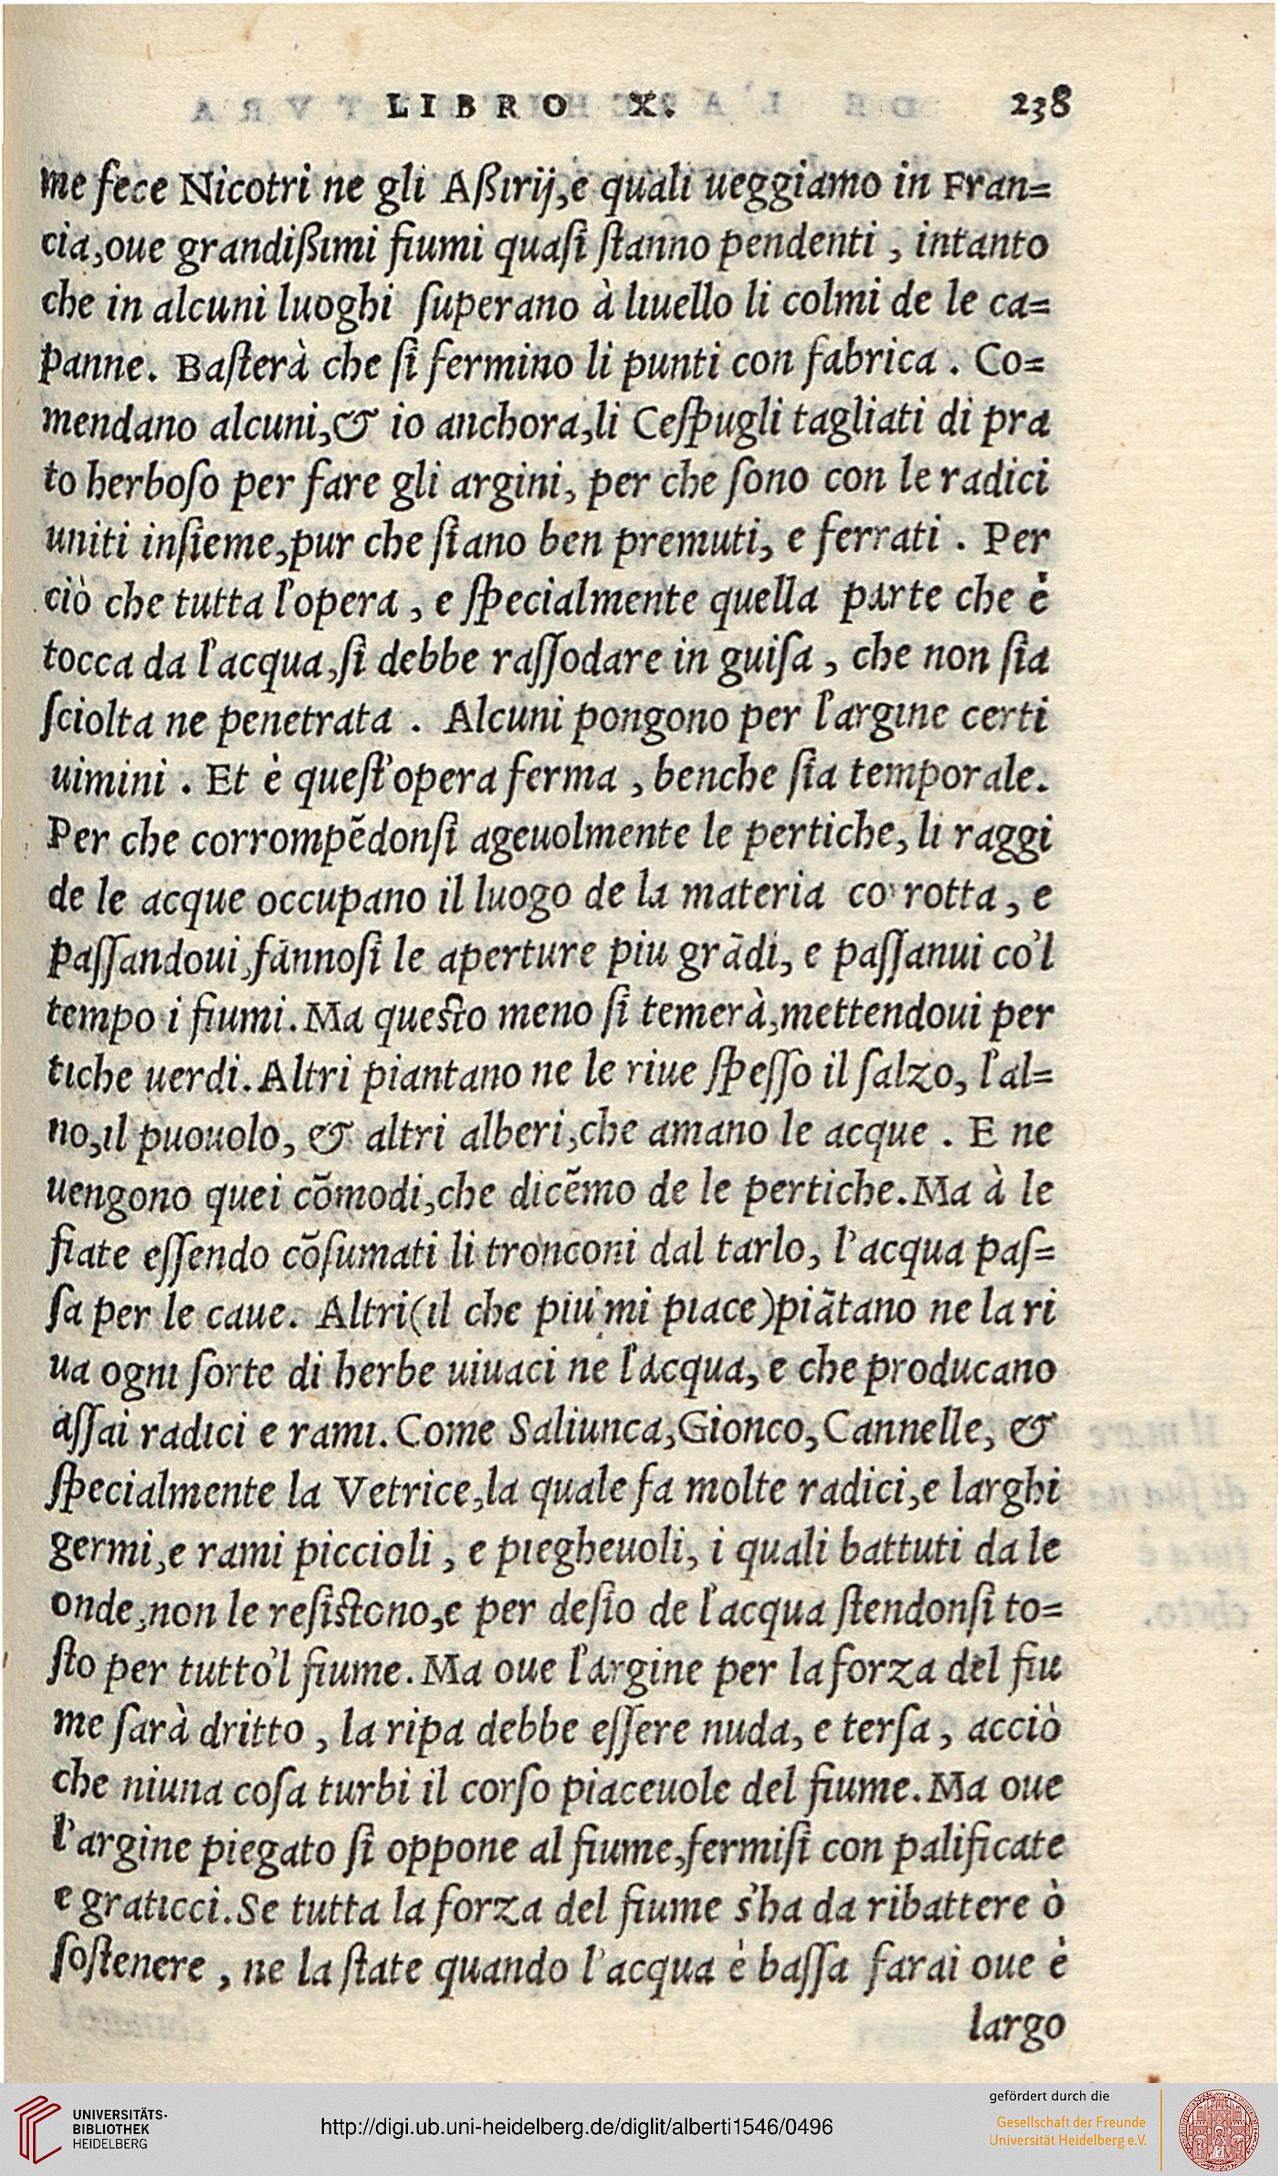 LIBRO X. 238
me fece Nicotri ne gli Aßirij,e quali ueggiamo in Fran=
cia,oue grandißimi fiumi quaſi ſtanno pendenti , intanto
che in alcuni luoghi ſuperano à liuello li colmi de le ca=
panne. Baſterà che ſi fermino li punti con fabrica . Co=
mendano alcuni,& io anchora,li Ceſpugli tagliati di pra
to herboſo per fare gli argini, per che ſono con le radici
uniti inſieme,pur che ſiano ben premuti, e ferrati . Per
ciò che tutta l'opera , e ſpecialmente quella parte che è
tocca da l'acqua,ſi debbe raſſodare in guiſa , che non ſia
ſciolta ne penetrata . Alcuni pongono per l'argine certi
uimini . Et è queſt'opera ferma , benche ſia temporale.
Per che corrompẽdonſi ageuolmente le pertiche, li raggi
de le acque occupano il luogo de la materia corrotta , e
paſſandoui,fannoſi le aperture piu grãdi, e paſſanui co'l
tempo i fiumi. Ma queſto meno ſi temerà,mettendoui per
tiche uerdi. Altri piantano ne le riue ſpeſſo il ſalzo, l'al=
no,il puouolo, & altri alberi,che amano le acque . E ne
uengono quei cõmodi,che dicẽmo de le pertiche. Ma à le
fiate eſſendo cõſumati li tronconi dal tarlo, l'acqua paſ=
ſa per le caue. Altri(il che piu mi piace)piãtano ne la ri
ua ogni ſorte di herbe uiuaci ne l'acqua, e che producano
aſſai radici e rami. Come Saliunca,Gionco,Cannelle, &
ſpecialmente la Vetrice,la quale fa molte radici,e larghi
germi,e rami piccioli , e piegheuoli, i quali battuti da le
onde,non le reſiſtono,e per deſio de l'acqua ſtendonſi to=
ſto per tutto'l fiume. Ma oue l'argine per la forza del fiu
me ſarà dritto , la ripa debbe eſſere nuda, e terſa , acciò
che niuna coſa turbi il corſo piaceuole del fiume. Ma oue
l'argine piegato ſi oppone al fiume,fermiſi con palificate
e graticci. Se tutta la forza del fiume s'ha da ribattere ò
ſoſtenere , ne la ſtate quando l'acqua è baſſa farai oue è
largo
UNIVERSITÄTS-
BIBLIOTHEK
HEIDELBERG
http://digi.ub.uni-heidelberg.de/diglit/alberti1546/0496
gefördert durch die
Gesellschaft der Freunde
Universität Heidelberg e.V.